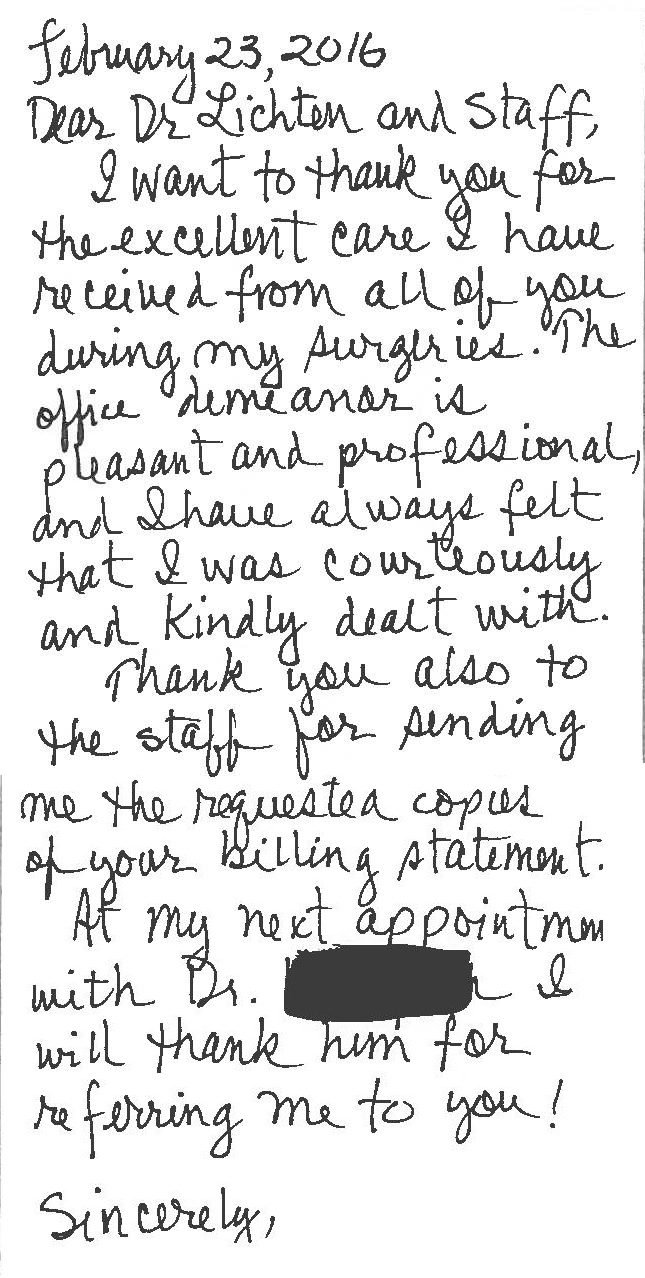 February 23, 2016
Dear Dr Lichten and Staff,
I want to thank you for
the excellent care I have
received from all of you
during my surgeries. The
office demeanor is
pleasant and professional,
and I have always felt
that I was courteously
and kindly dealt with.
Thank you also to
the staff for sending
me the requested copies
of your billing statement.
At my next appointmen
with Dr. I
will thank him for
referring me to you!
Sincerely,